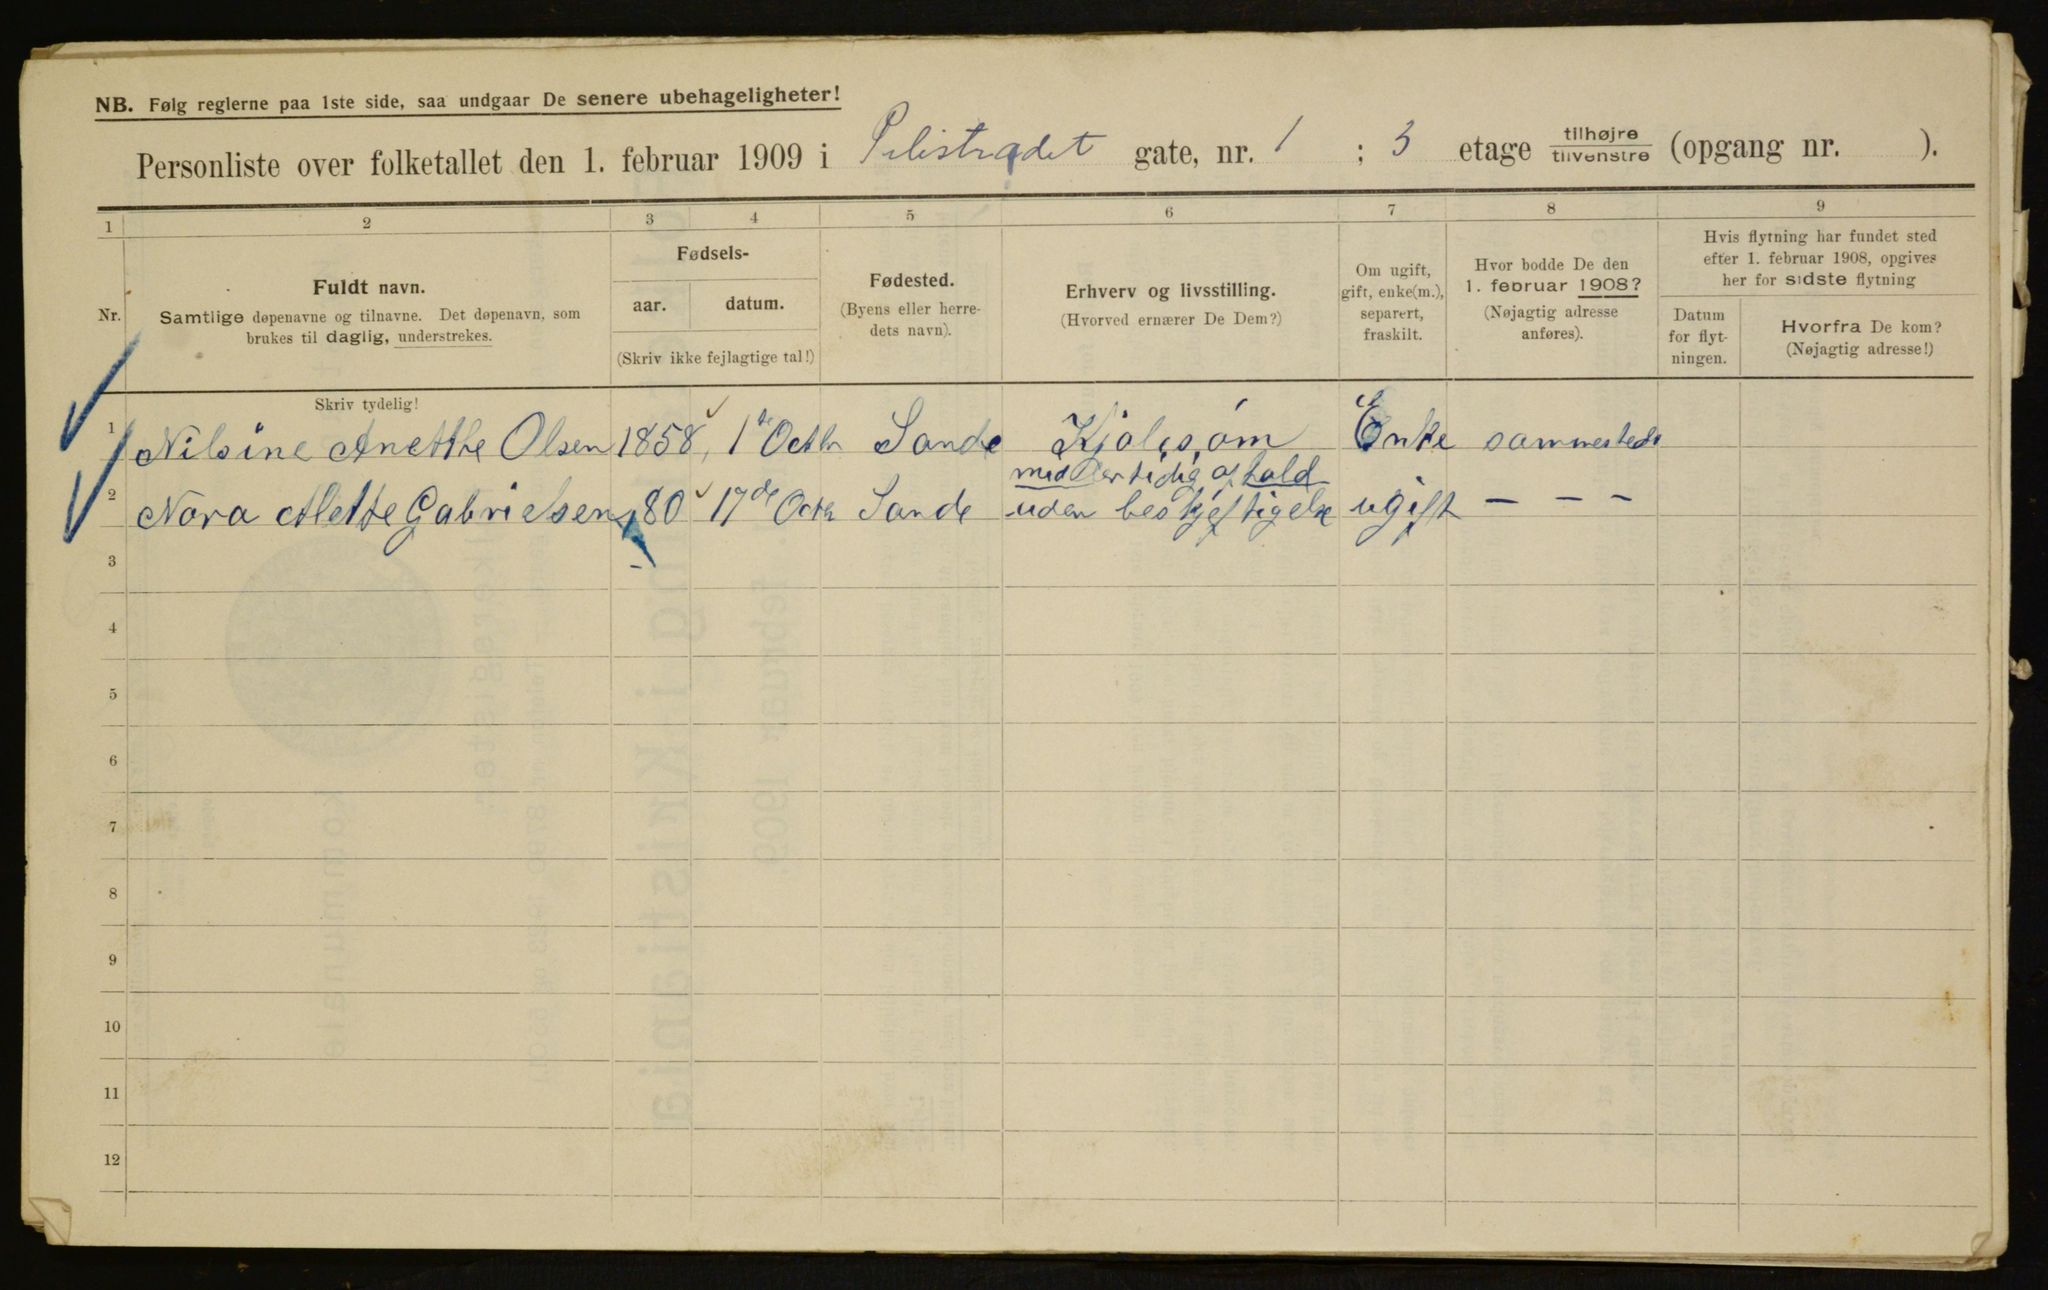 NB. Følg reglerne paa 1ste side, saa undgaar De senere ubehageligheter!
Personliste over folketallet den 1. februar 1909 i Pilestrædet gate, nr. 1 ; 3 etage tilhøjre/tilvenstre (opgang nr. ).
1 2 3 4 5 6 7 8 9
Nr.
Fuldt navn.
Samtlige døpenavne og tilnavne. Det døpenavn, som
brukes til daglig, understrekes.
Fødsels-
aar. datum.
(Skriv ikke fejlagtige tal!)
Fødested.
(Byens eller herre-
dets navn).
Erhverv og livsstilling.
(Hvorved ernærer De Dem?)
Om ugift,
gift, enke(m.),
separert,
fraskilt.
Hvor bodde De den
1. februar 1908?
(Nøjagtig adresse
anføres).
Hvis flytning har fundet sted
efter 1. februar 1908, opgives
her for sidste flytning
Datum
for flyt-
ningen.
Hvorfra De kom?
(Nøjagtig adresse!)
Skriv tydelig!
1 Nilsine Anetthe Olsen 1858, 1 Octbr Sande Kjolesøm Enke sammesteds
2 Nora Alette Gabrielsen 80 17de Octb Sande uden beskjeftigelse ugift — — —
3
4
5
6
7
8
9
10
11
12